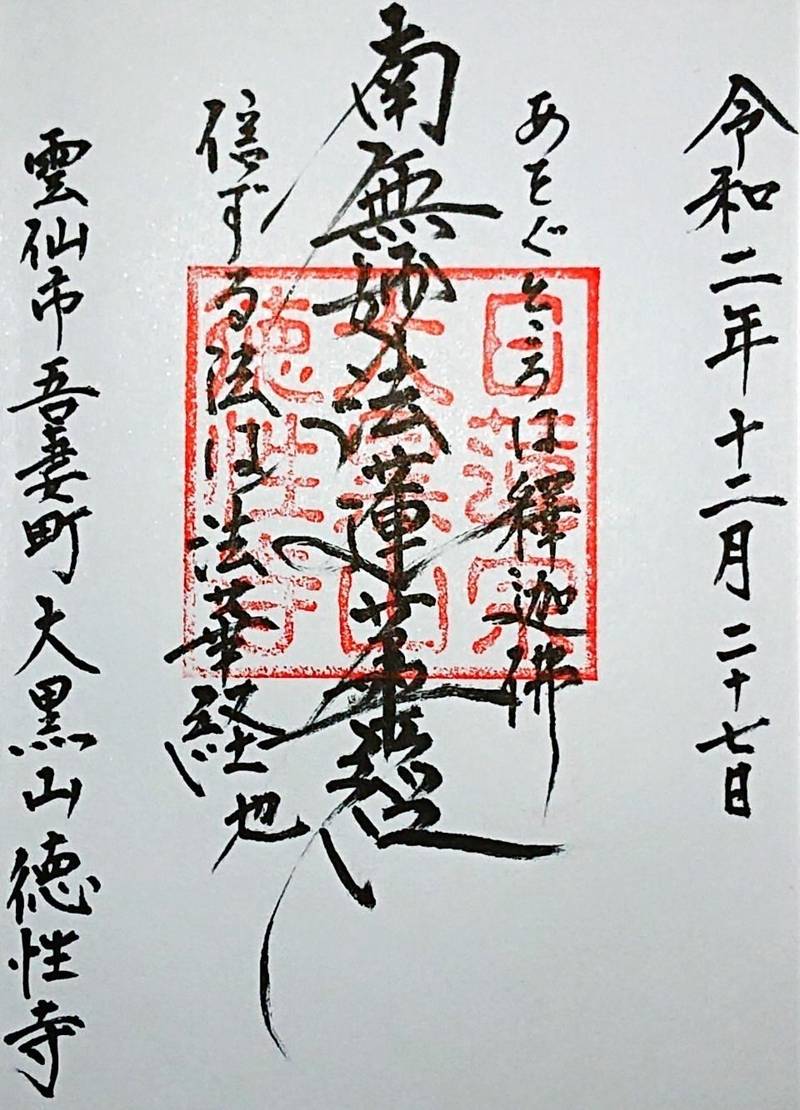 令和二年十二月二十七日
あをぐところは釋迦佛
南無妙法蓮華経
信ずる法は法華経也
雲仙市吾妻町大黒山徳性寺
日蓮宗
大黒山
徳性寺